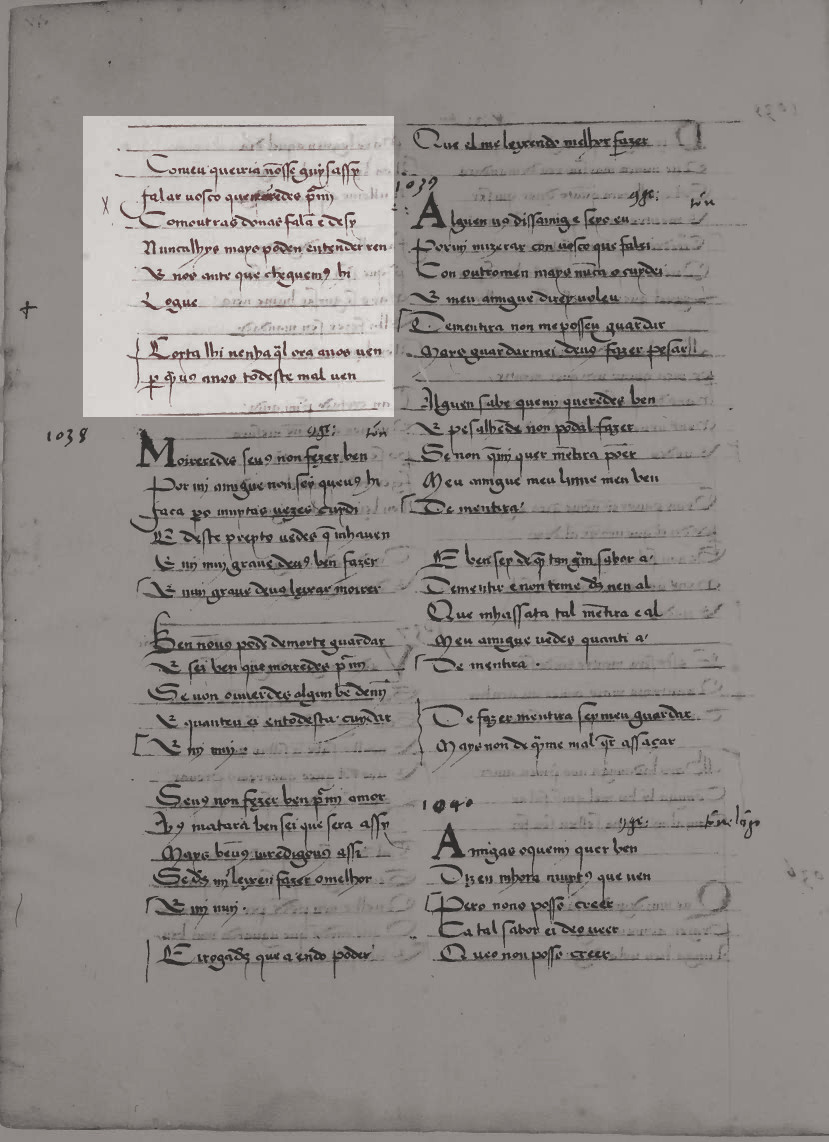 Comeu queiria nosse guysassy
falar uosco que queredes pmi
Comoutras donas fala e desy
Nuncalhys mays poden entender ren
E nos ante que cheguem9 hi
Logue
Corta lhi nenha ql ora anos uen
p q u9 anos todeste mal uen
1038
Moireredes seu9 non fezer ben
Por mi amigue non sey que u9 hi
faca po muytas uezes cuydi
E deste preyto uedes q mhauen
E mi muy graue deu9 ben fazer
E muy graue deu9 leixar moirer
Ben nou9 pode demorte guardar
E sei ben que moiredes pmi
Se non ouuerdes algum be demi
E quanten ei entodesta cuydar
E mi muy
Seu9 non fezer ben pmi amor
Vu9 matara ben sei que sera assy
Mays beu9 iuredigou9 assi
Seds mi leyxen fazer omelhor
E mi muy
E rogads que a endo poder
Que el me leyxendo melhor fazer
1039
Alguen uo dissamig e seyo eu
Por mi mizcrar con uosco que falei
Con outromen mays nuca o cuydei
E meu amigue direyuoleu
De mentira non me possen guardar
Mays guardarmei deu9 fazer pesar
Alguen sabe queni queredes ben
E pesalhede non podal fazer
Se non qmi quer metira poer
Meu amigue meu lume meu ben
De mentira
E ben sey de q tan gm sabor a
De mentir e non teme ds nen al
Que mhassaca tal metira e al
Meu amigue uedes quanti a
De mentira
De fazer mentira sey meu guardar
Mays non de qime mal qr assacar
1040
Amigas oquemi quer ben
Dizen mhora muyt9 que uen
Pero nono posso creer
Ca tal sabor ei deo ueer
Queo non posso creer